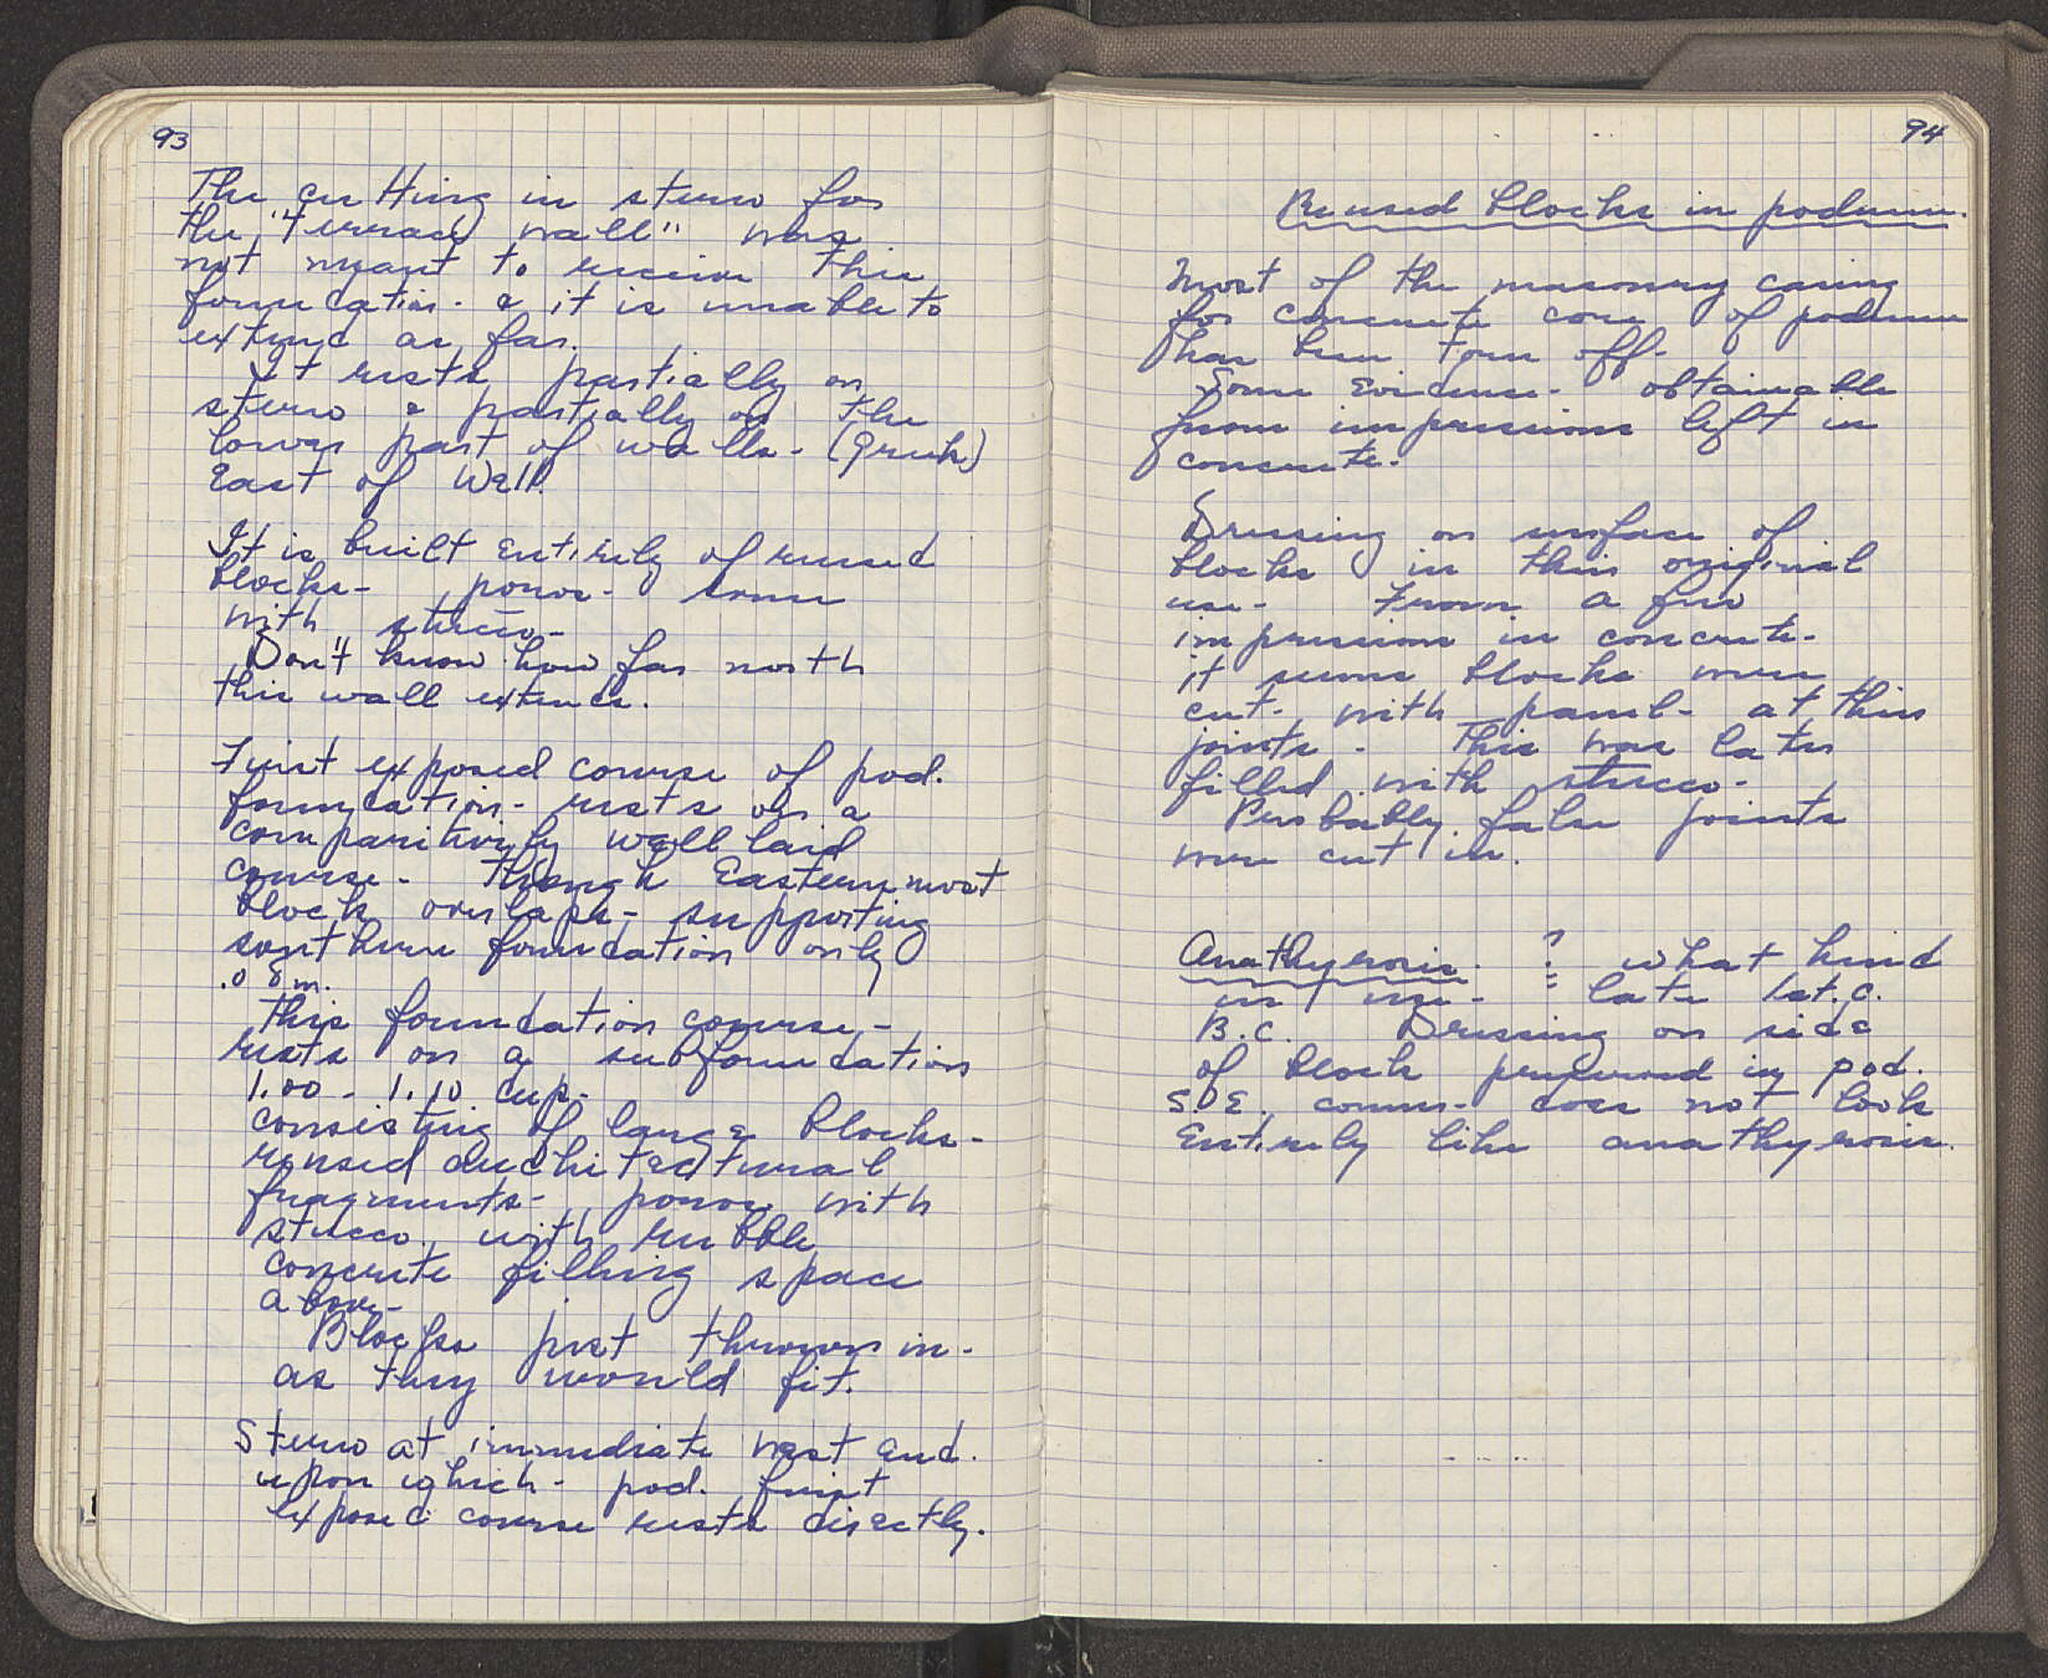 93
The cutting in stereo for
the "terrace wall" was
not meant to receive this
foundation - & it is unable to
extend as far.
It rests partially on
stereo & partially on the
lower part of walls - (Greek)
East of Well.
It is built entirely of reused
blocks - poros - some
with stucco -
Don't know how far north
this wall extends.
First exposed course of pod.
foundation - rests on a
comparitively well laid
course - though Easternmost
block overlaps - supporting
southern foundation only
.08m.
This foundation course -
rests on a subfoundation
1.00 - 1.10 deep -
consisting of large blocks -
reused architectural
fragments - poros with
stucco, with rubble
concrete filling space
above -
Blocks just thrown in -
as they would fit.
Stereo at immediate west end.
upon which - pod. first
exposed course rests directly.
94
Reused blocks in podium.
Most of the masonry casing
for concrete core of podium
has been torn off -
Some evidence - obtainable
from impressions left in
concrete -
Dressing on surface of
blocks in their original
use - From a few
impressions in concrete -
it seems blocks were
cut - with panel - at their
joints - This was later
filled with stucco -
Probably false joints
were cut in.
Anathyrosis - ? what kind
in use - late 1st. c.
B.C. Dressing on side
of block preserved in pod.
S.E. corner - does not look
Entirely like anathyrosis.